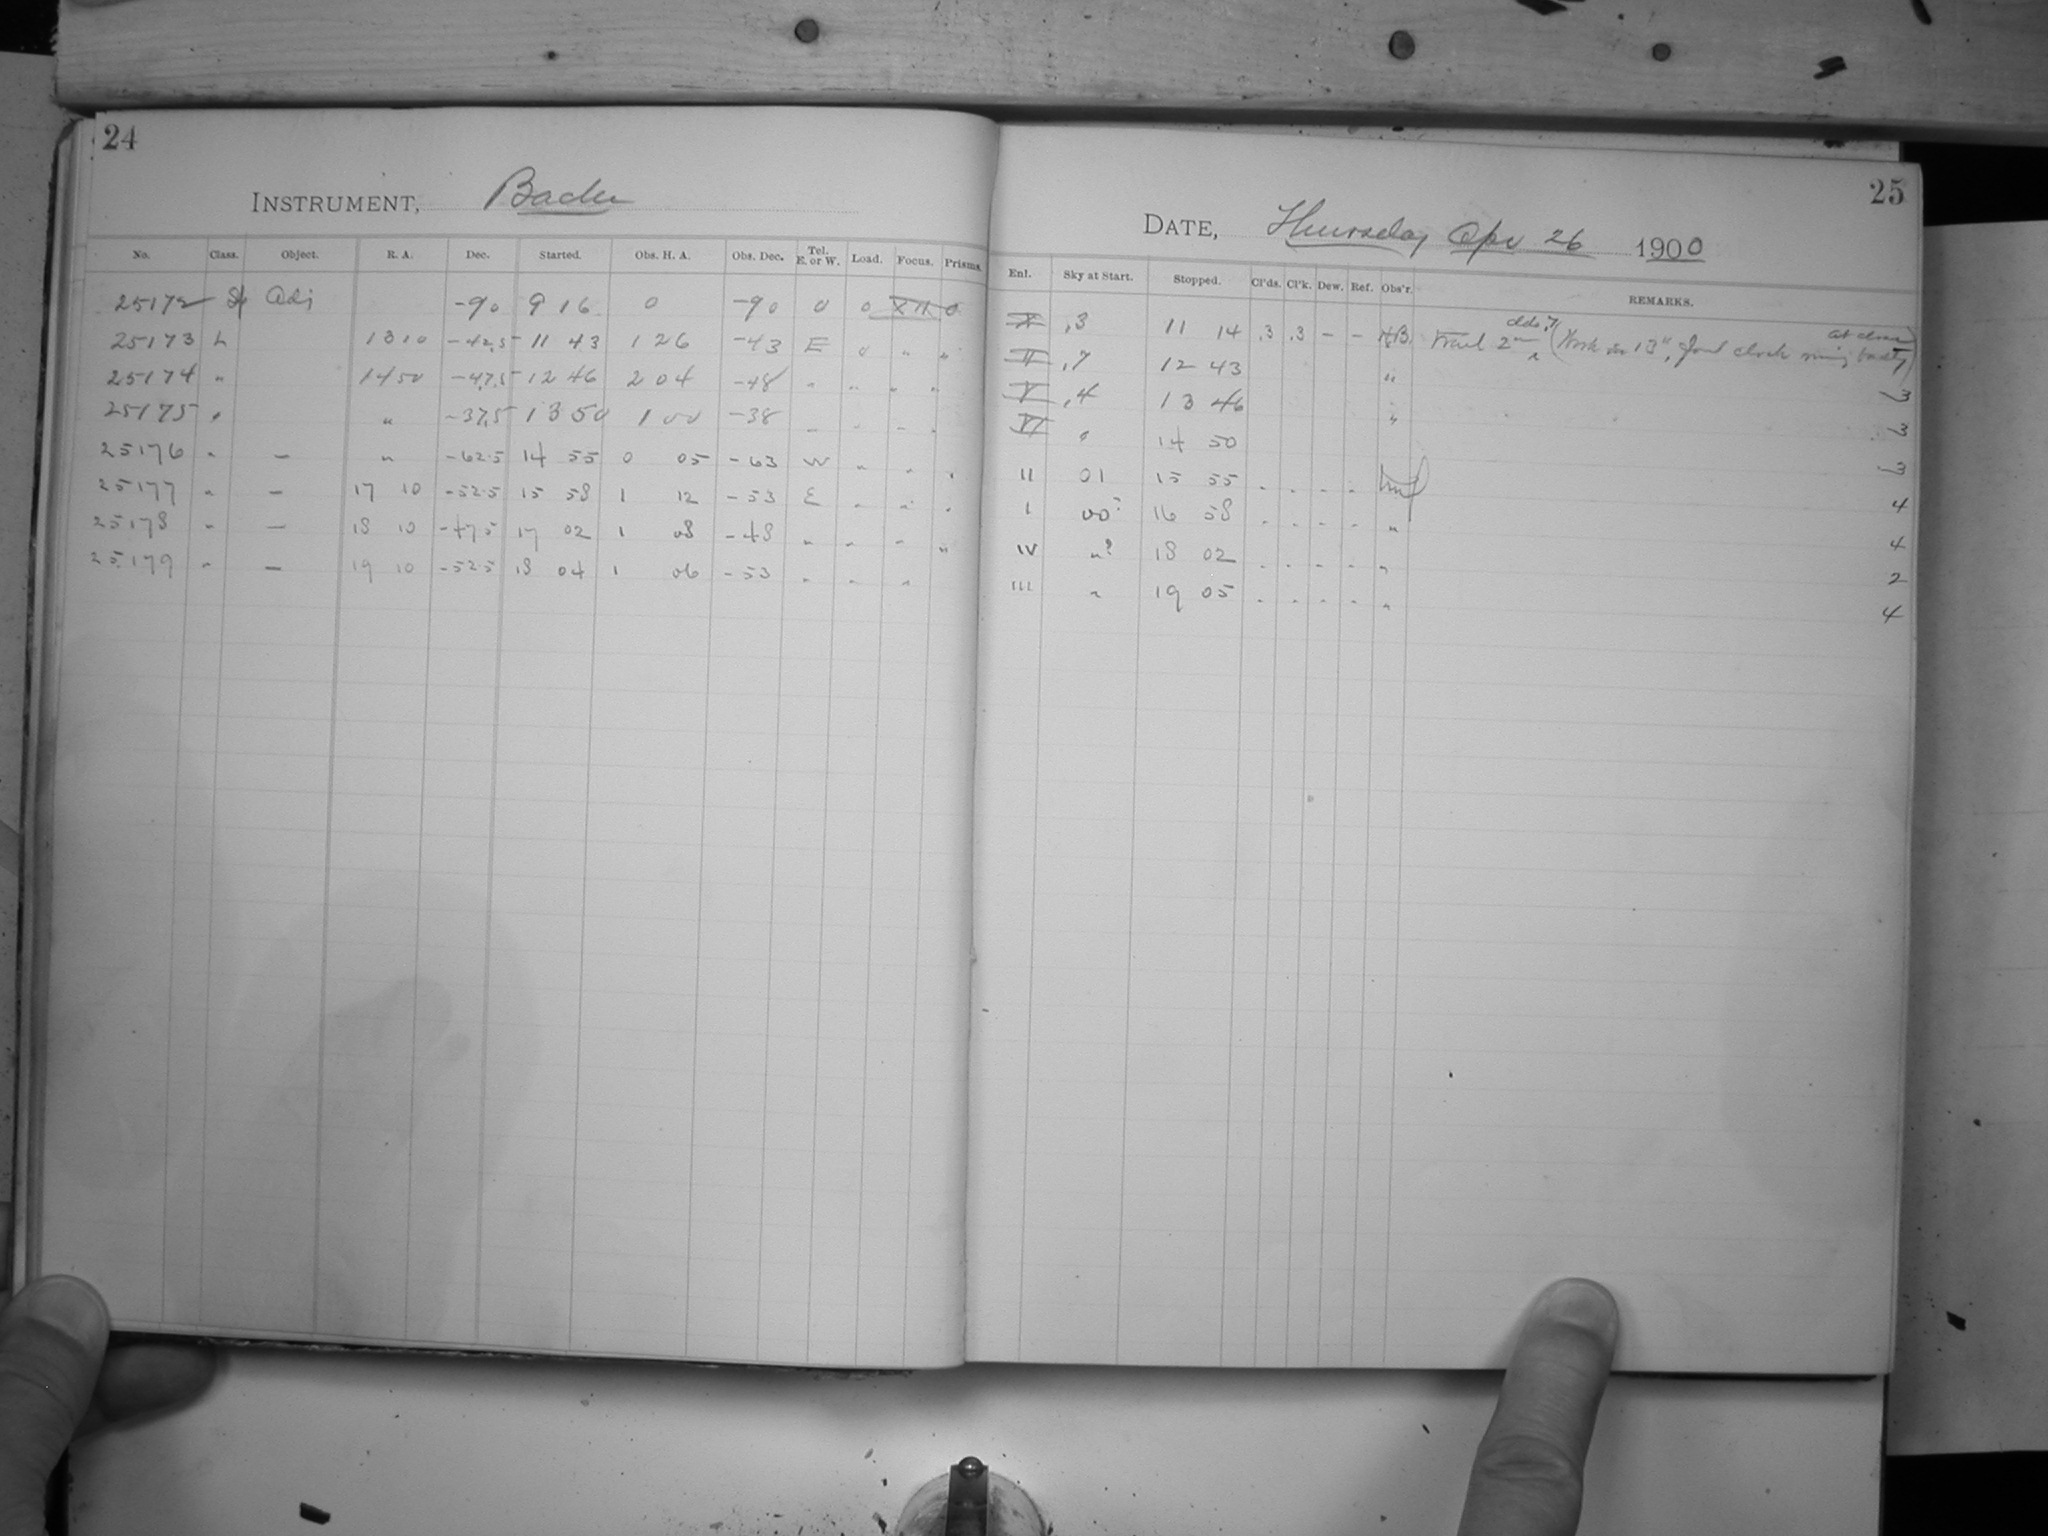 24
INSTRUMENT, Bache
No. Class. Object. R. A. Dec. Started. Obs. H. A. Obs. Dec. Tel. E. or W. Load. Focus. Prisms.
25172 Sp Adj -90 9 16 0 -90 0 0 XII 0
25173 L 13 10 -42.5 11 43 1 26 -43 E 0 " "
25174 " 14 50 -47.5 12 46 2 04 -48 " " " "
25175 " " -37.5 13 50 1 00 -38 " " " "
25176 " — " -62.5 14 55 0 05 -63 W " " "
25177 " — 17 10 -52.5 15 58 1 12 -53 E " " "
25178 " — 18 10 -47.5 17 02 1 08 -48 " " " "
25179 " — 19 10 -52.5 18 04 1 06 -53 " " "
25
DATE, Thursday Apr 26 1900
Enl. Sky at Start. Stopped. Cl'ds. Cl'k. Dew. Ref. Obs'r. REMARKS.
X .3 11 14 .3 .3 - - Trail 2m (Work on 13", clock badly) at close
II .7 12 43 " 3
V .4 13 46 " 3
VI 14 50 3
II 01 15 55 4
I 00? 16 58 " 4
IV "? 18 02 " 2
III " 19 05 " 4